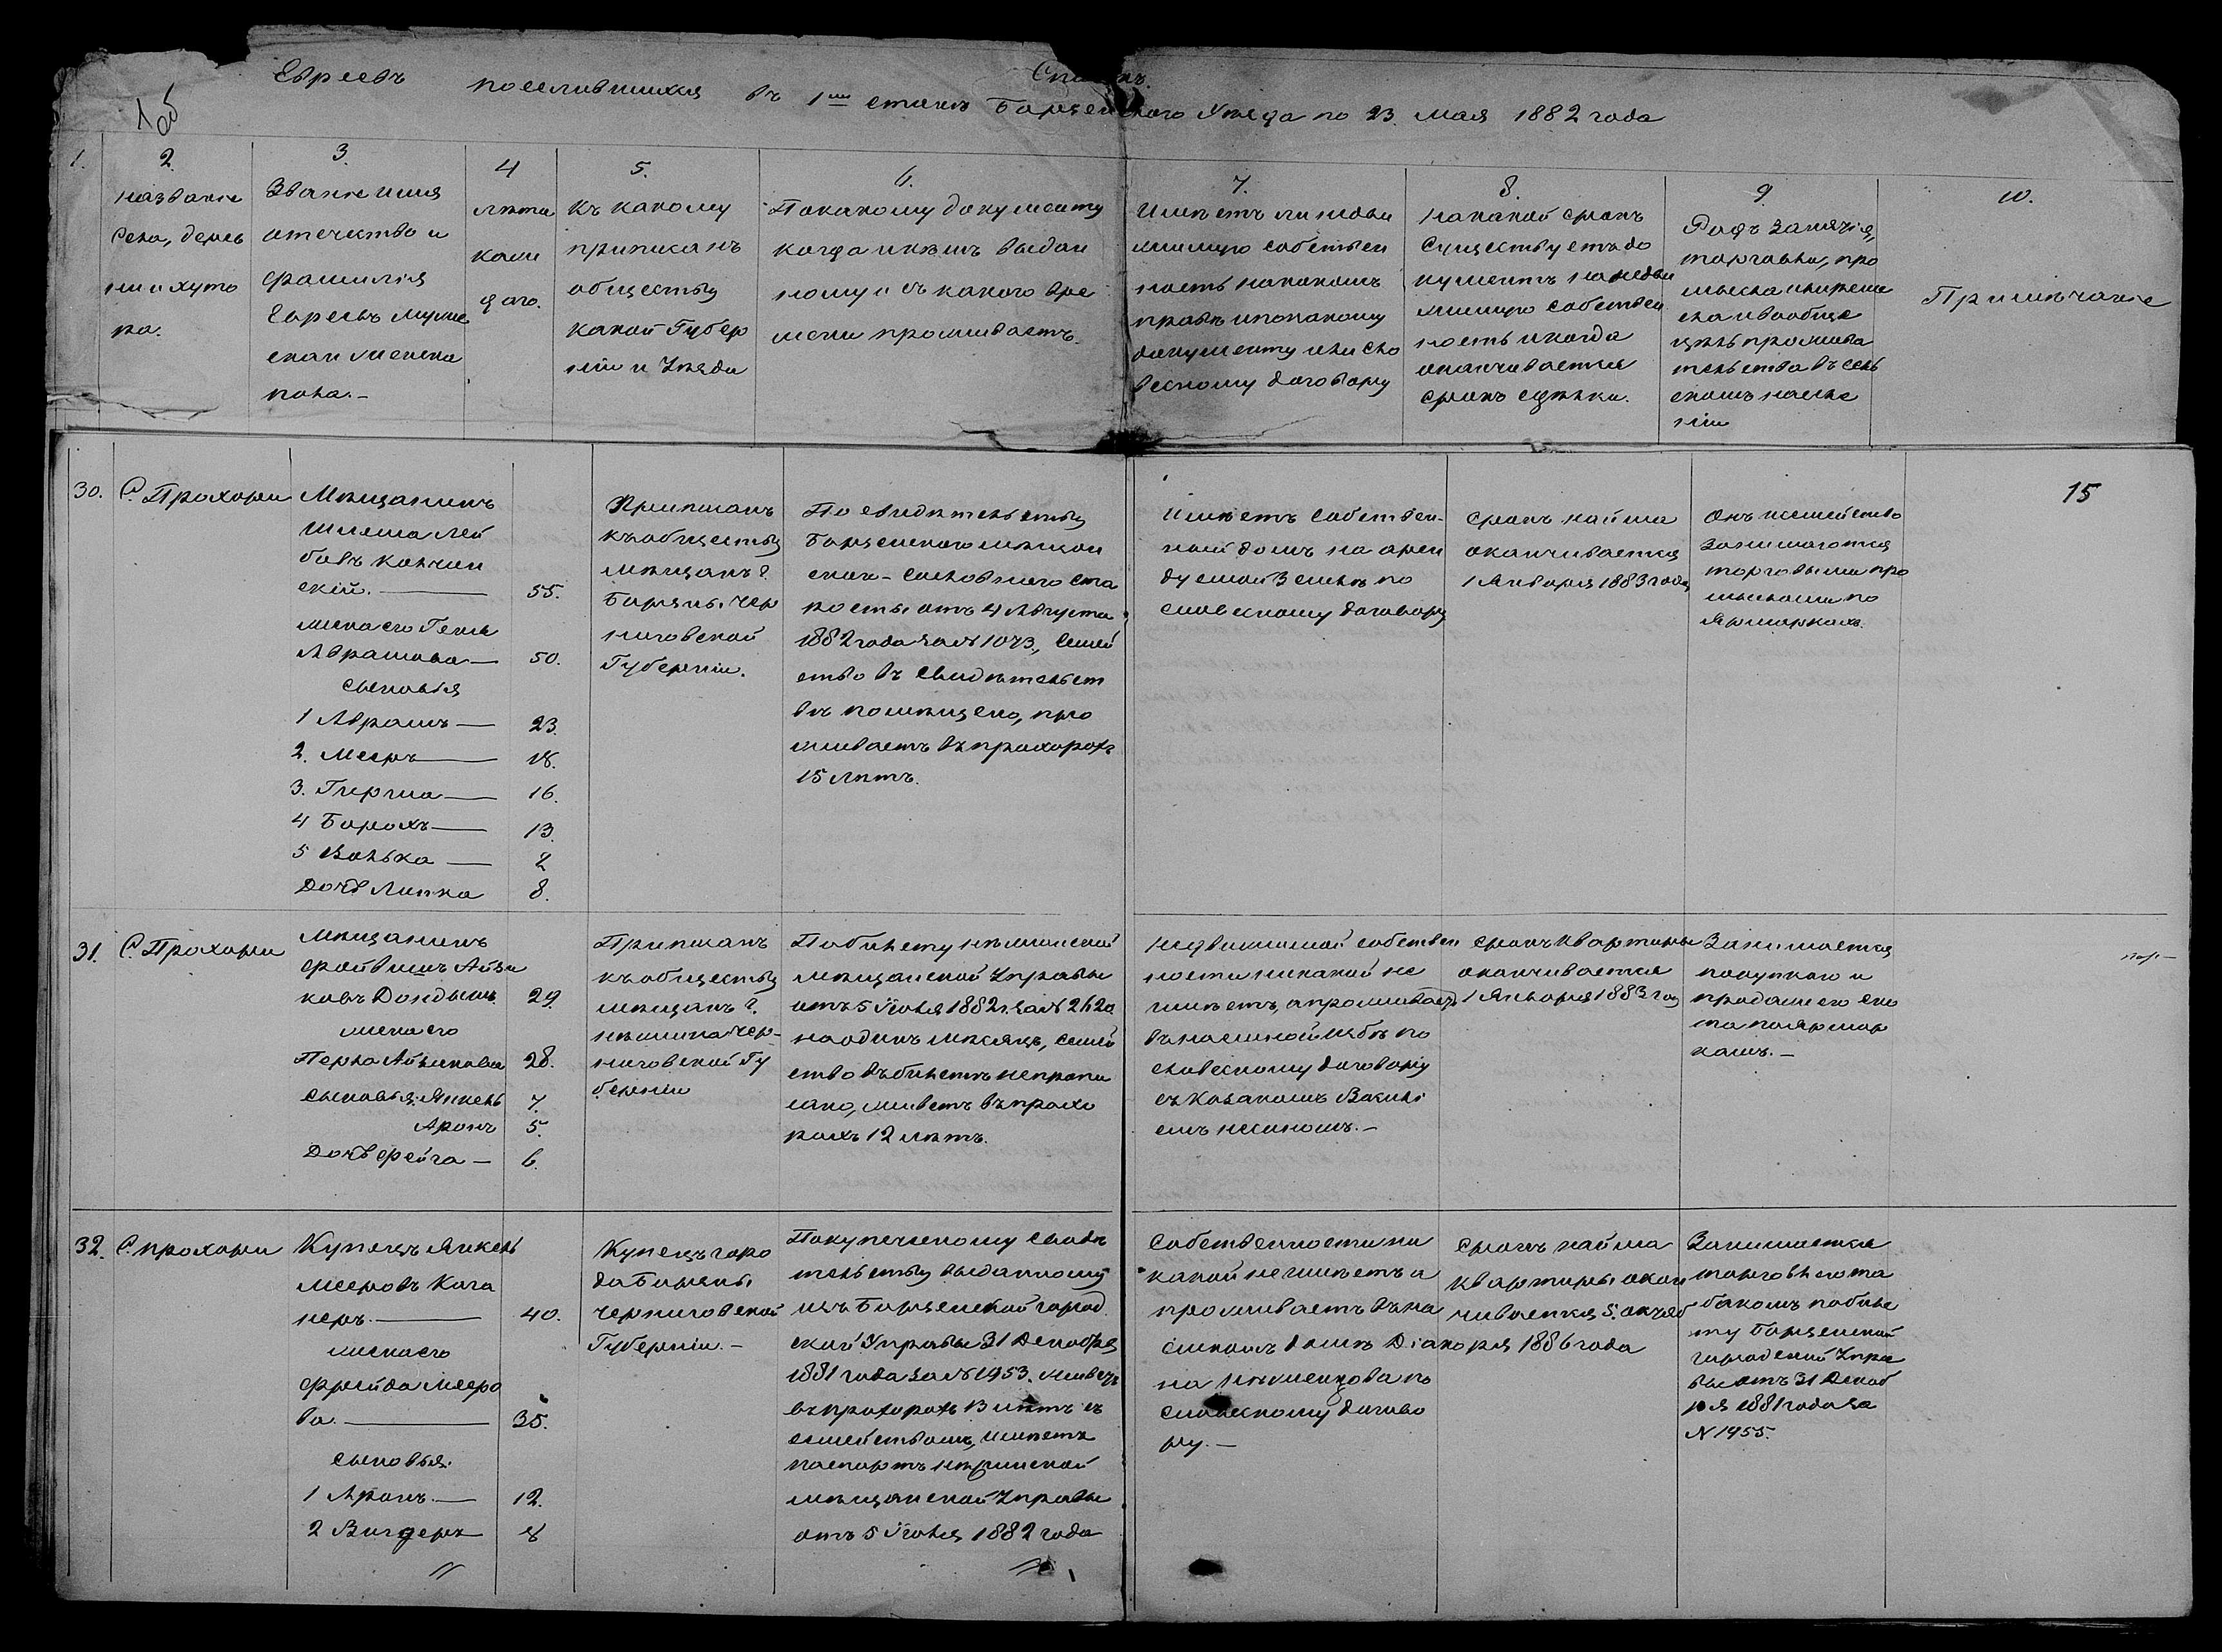 Списокъ
Евреевъ поселившихся въ 1мъ станѣ Борзенского Уѣзда по 23 мая 1882 года
1.
2.
названіе
села, дерев
ни и хуто
ра.
3.
Званіе имя
отечество и
фамилія
Евреевъ муже
скаи женска
пола.–
4
лѣта
кажд
даго.
5.
къ какому
приписанъ
обществу
какой Губер
ніи и Уѣзда
6.
По какому документу
когда и кѣмъ выдан
ному и съ какого вре
мени проживаетъ.
7.
Имѣетъ ли недви
жимую собствен
ность на какомъ
правѣ и по какому
документу или сло
весному договору
8.
на какой срокъ
существуетъ до
кументъ на недви
жимую собствен
ность и когда
оканчивается
срокъ сдѣлки.
9
Родъ занятія,
торговли, про
мысла и вообще
цѣль прожива
тельства въ сель
скомъ населе
ніи
10.
Примѣчаніе
15
30.
С. Прохоры
Мѣщанинъ
Шлема Лей
бовъ
скій. 55.
жена его Геня
Абрамова 50.
сыновья
1 Абрамъ 23.
2. Мееръ 18.
3. Гирша 16.
4 Борохъ 13.
5 Волька 2
Дочь Липка 8.
Приписанъ
къ обществу
мѣщанъ г.
Борзны Чер
ниговской
Губерніи.
По свидѣтельству
Борзенского мѣщан
скаго сословнаго ста
росты отъ 4 Августа
1882 года за № 1073, семей
ство въ свидѣтельст
вѣ помѣщено, про
живаетъ въ прохорахъ
15 лѣтъ.
Имѣетъ собствен-
ный домъ на арен
дуемой землѣ по
словесному договору
срокъ найма
оканчивается
1 Января 1883 года
Онъ и семейство
занимаются
торговыми про
мыслами по
Ярмаркахъ.
31.
С. Прохоры
Мѣщанинъ
Айзи
ковъ 29.
жена его
Перла Айзикова 28.
сыновья: Янкель 7.
Аронъ 5.
Дочь Фейга – 6.
Приписанъ
къ обществу
мѣщанъ г.
нѣжина Чер-
ниговской Гу
берніи
По билету нѣжинской
мѣщанской Управы
отъ 5 Іюля 1882 г. за № 2620
на одинъ мѣсяцъ, семей
ство въ билетѣ не пропи
сано, живетъ въ прохо
рахъ 12 лѣтъ.
недвижимой собствен
ности никакой не
имѣетъ, а проживаетъ
въ наемной избѣ по
словесному договору
съ козакомъ Василі
емъ
срокъ квартиры
оканчивается
1 Января 1883 год
Занимается
покупкою и
продажею ско
та по ярмар
камъ.–
32.
С. прохоры
Купецъ Янкель
Мееровъ Кага
неръ. 40.
жена его
Фрейда Мееро
ва. 35.
сыновья.
1 Аронъ. 12.
2 8
Купецъ горо
да Борзны
Черниговской
Губерніи.–
По купеческому свидѣ
тельству выданному
изъ Борзенской город
ской Управы 31 Декабря
1881 года за № 1953. живетъ
въ прохорахъ 13 лѣтъ съ
семействомъ, имѣетъ
паспортъ нѣжинской
мѣщанской Управы
отъ 5 Іюля 1882 года
Собственности ни
какой не имѣетъ а
проживаетъ въ на
емномъ домѣ Діако
на по
словесному догово
ру.–
срокъ найма
квартиры окан
чивается 5. октяб
ря 1886 года
Занимается
торговлею та
бакомъ по биле
ту Борзенской
городской Упра
вы отъ 31 Декаб
ря 1881 года за
№ 1955.